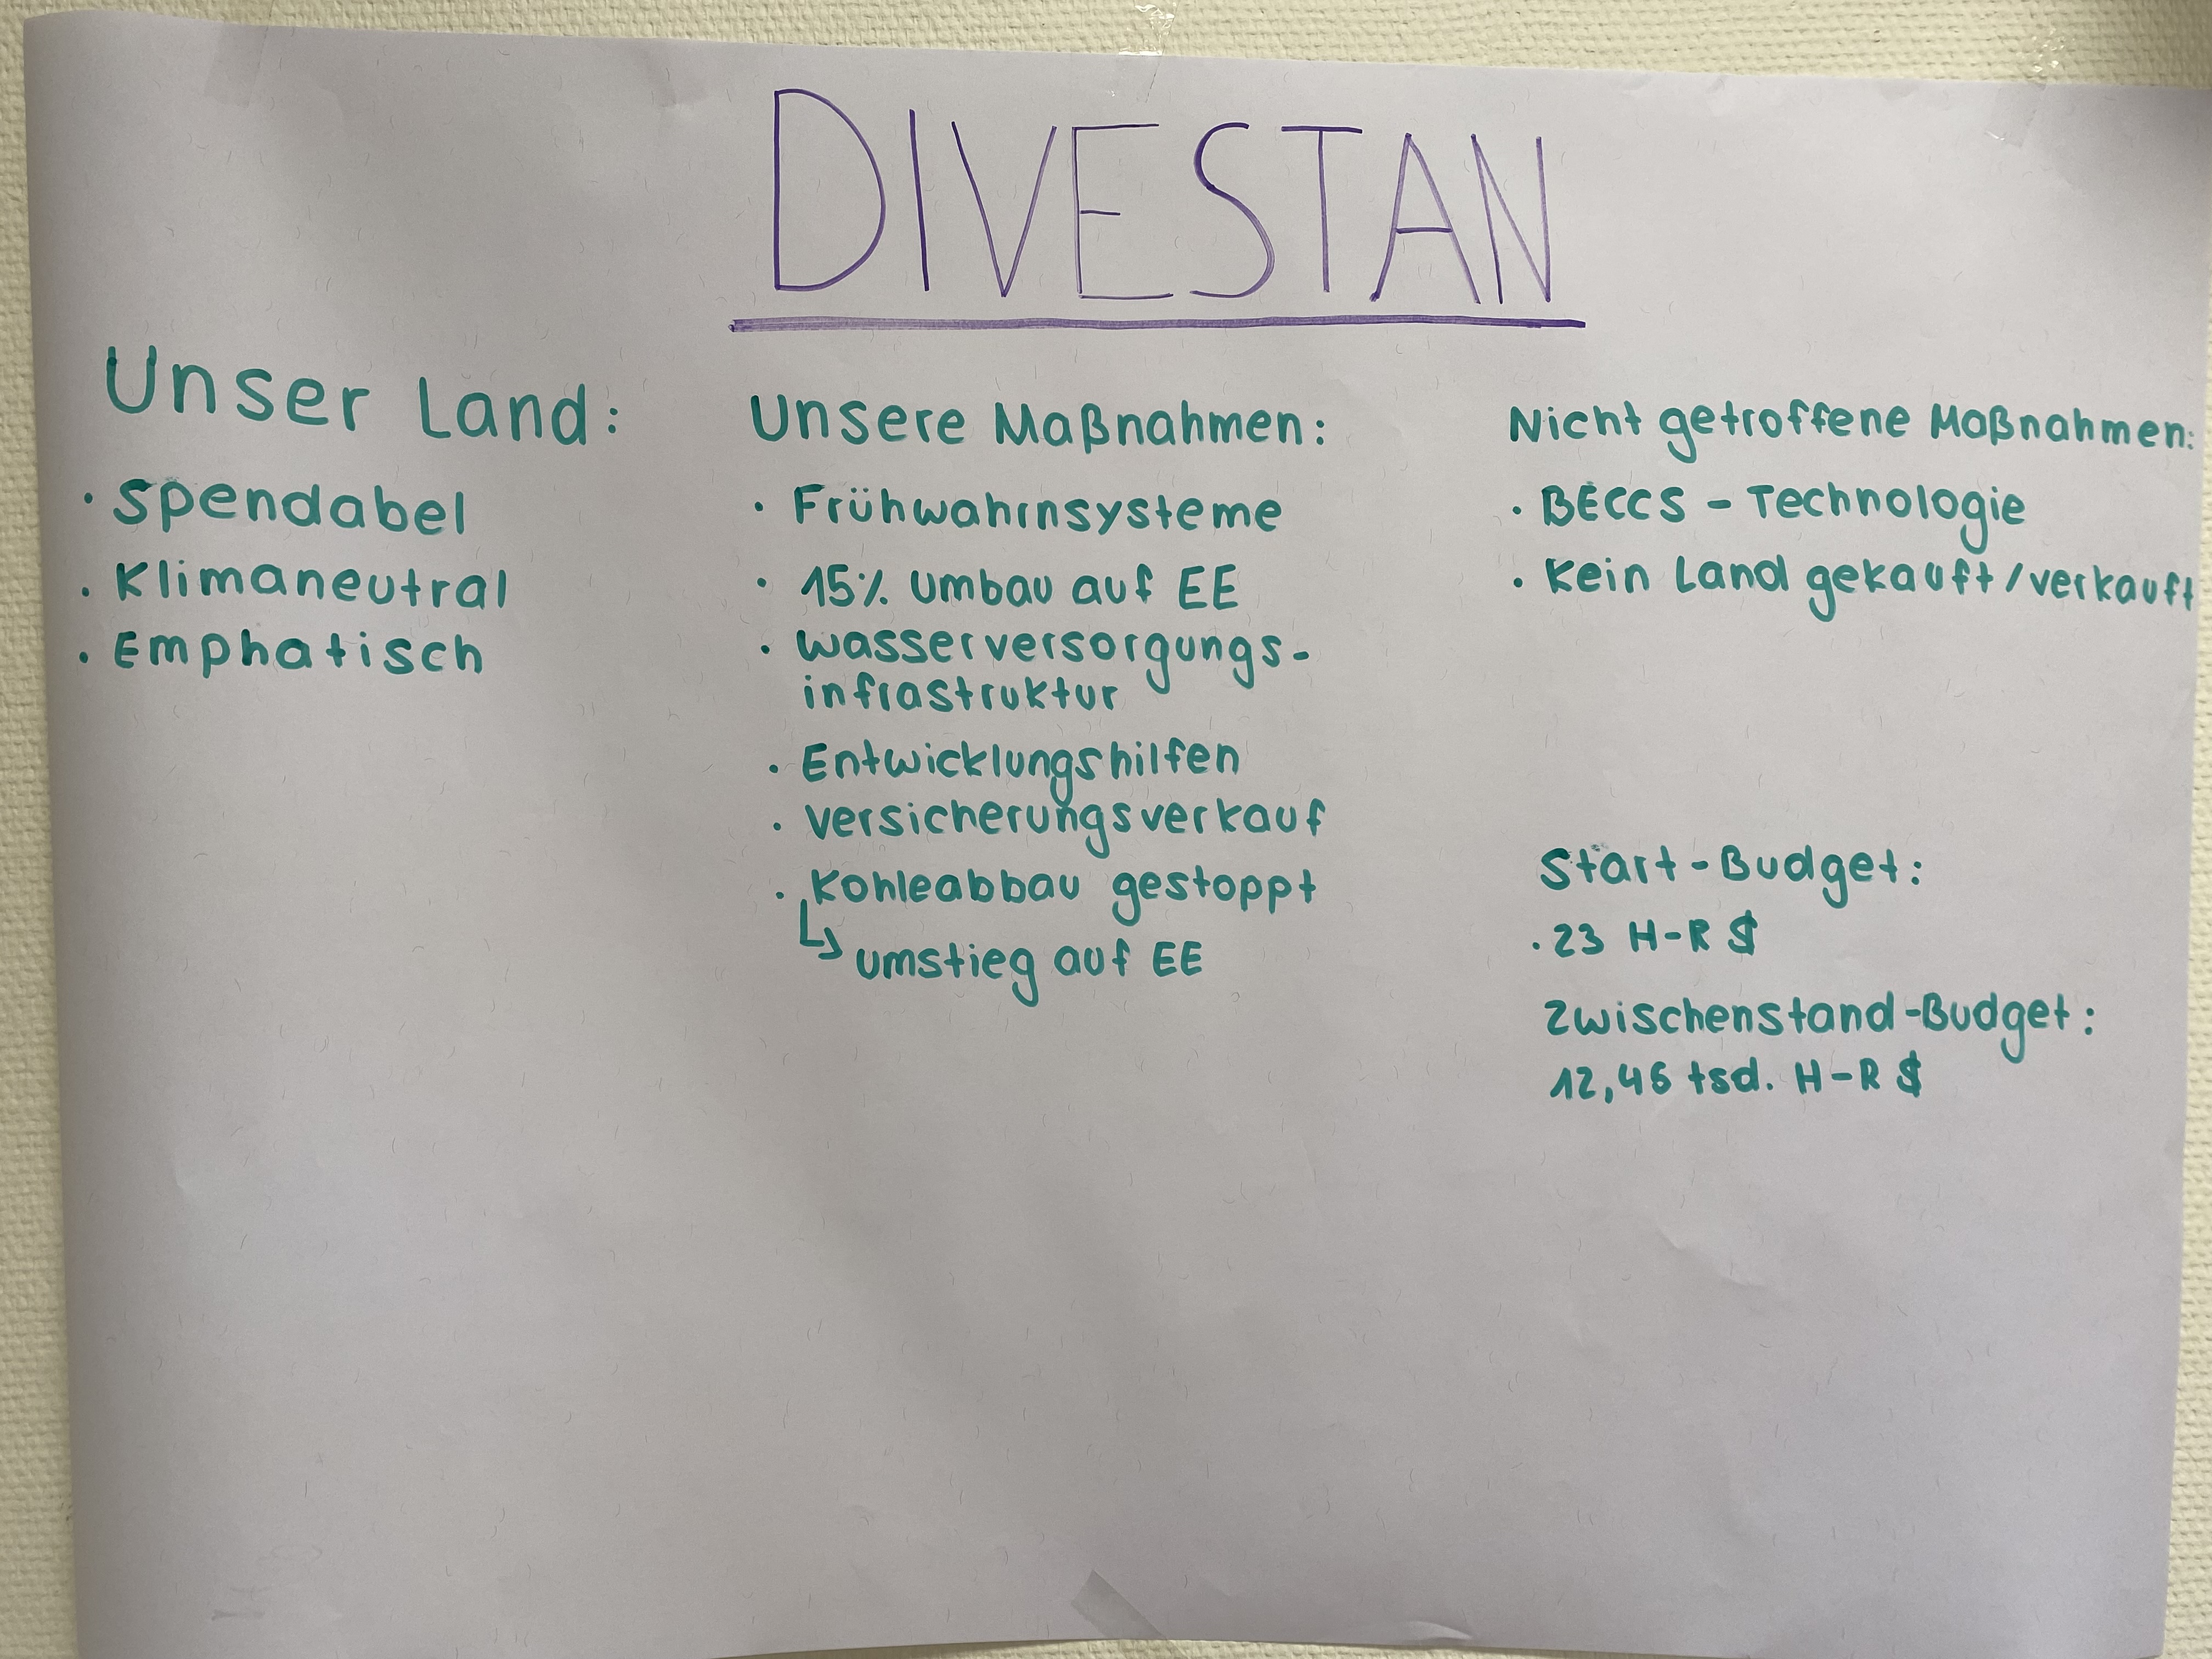 DIVESTAN
Unser Land:
• Spendabel
• Klimaneutral
• Emphatisch
Unsere Maßnahmen:
• Frühwahrnsysteme
• 15% Umbau auf EE
• Wasserversorgungs-
infrastruktur
• Entwicklungshilfen
• Versicherungsverkauf
• Kohleabbau gestoppt
↳ Umstieg auf EE
Nicht getroffene Maßnahmen:
• BECCS - Technologie
• Kein Land gekauft/verkauft
Start-Budget:
• 23 H-R $
Zwischenstand-Budget:
12,46 tsd. H-R $